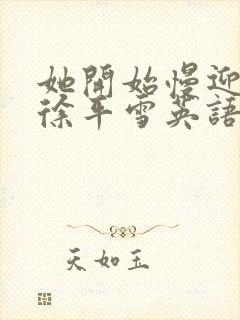 她開始慢迎
徐平雪英語
天如玉